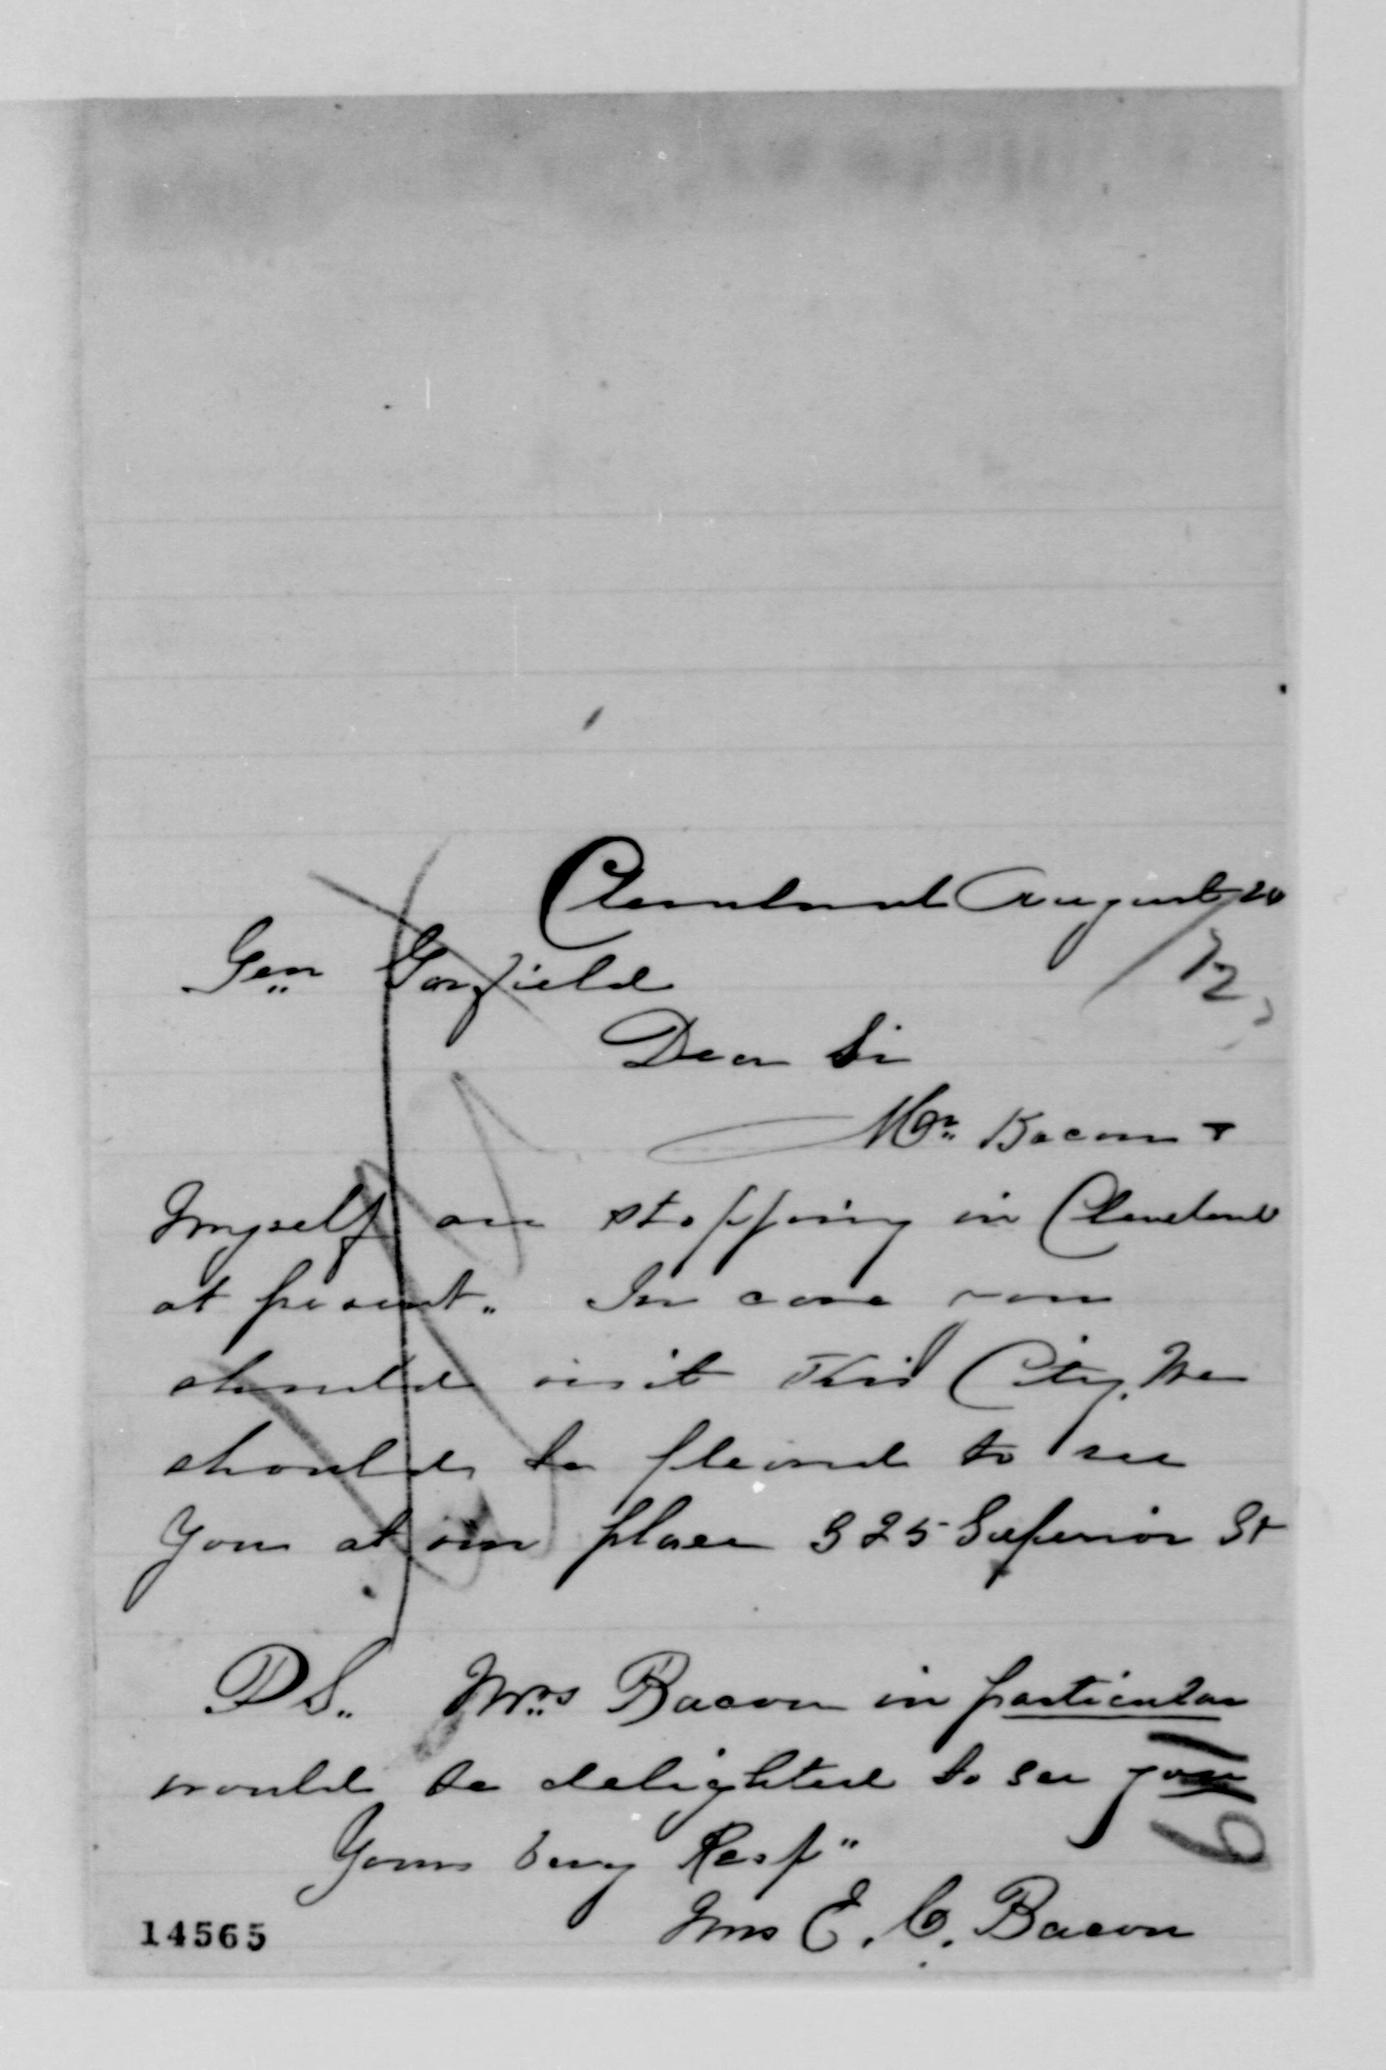 Cleveland August 20
/72
Gen Garfield
Dear Sir
Mr. Bacon &
myself are stopping in Cleveland
at present. In case you
should visit this City, we
should be pleased to see
you at our place 325 Superior St
P.S. Mrs Bacon in particular
would be delighted to see you
Yours very Resp"
Mrs E. C. Bacon
14565